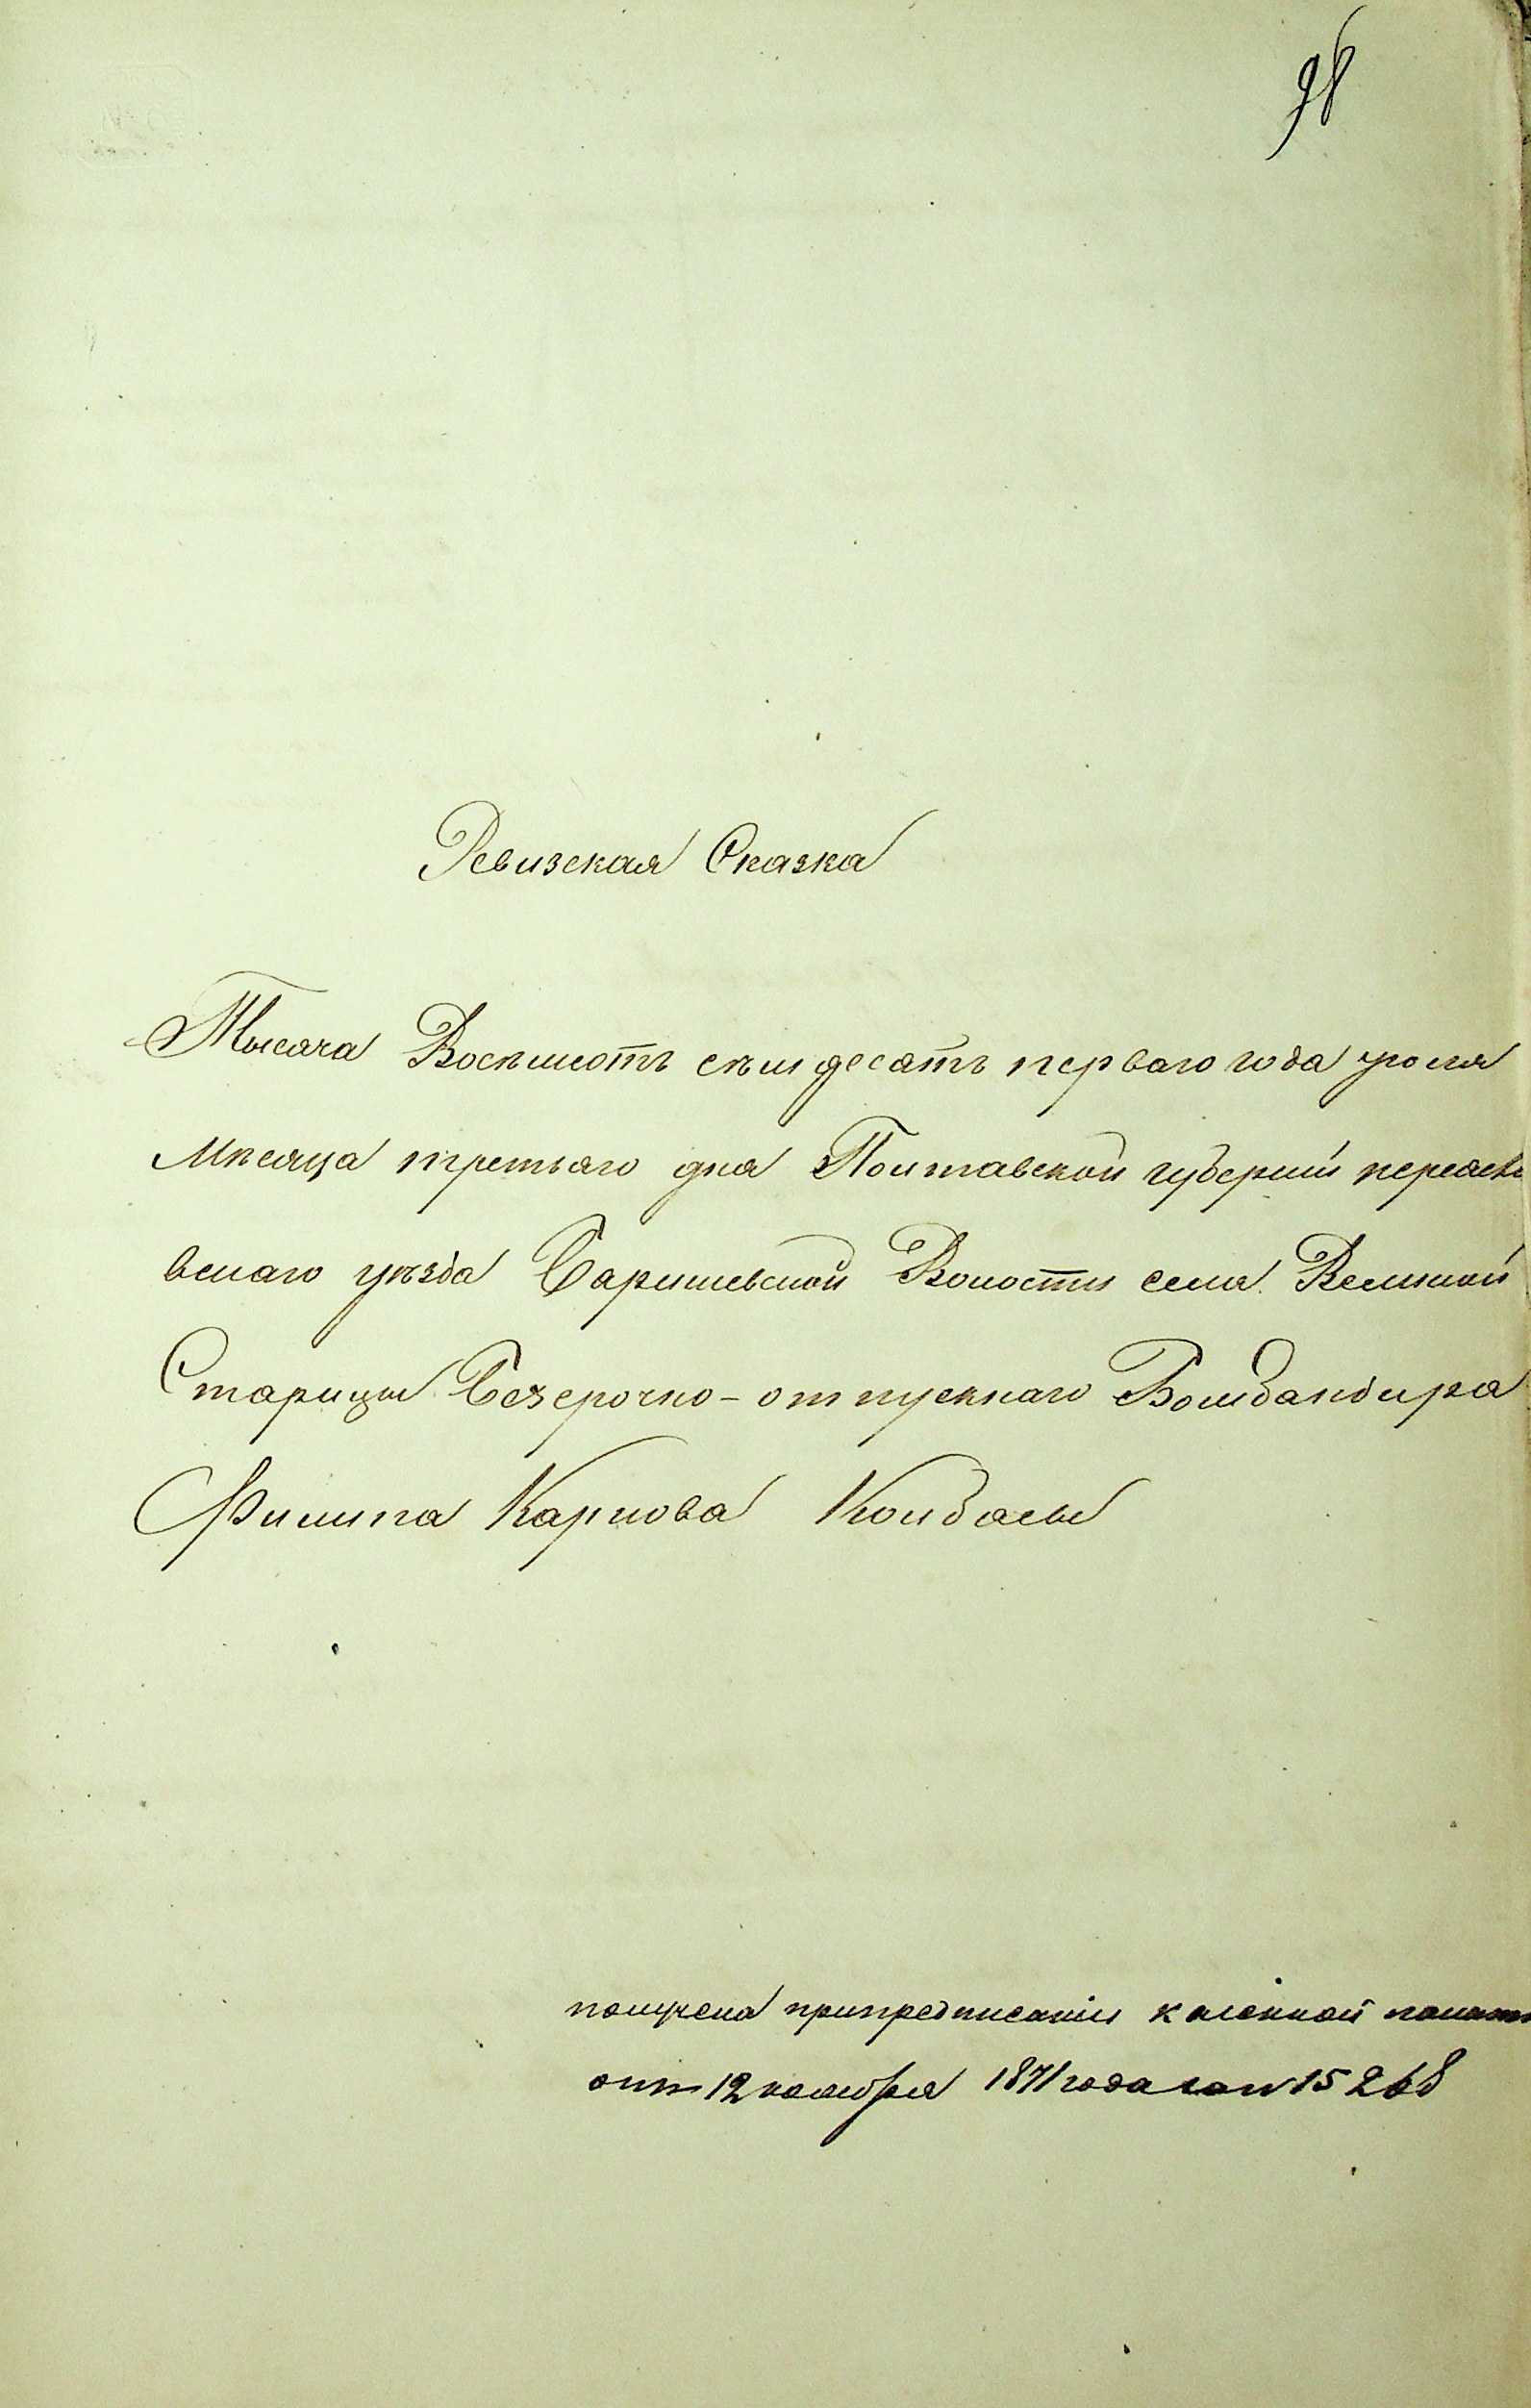 98
Ревизская Сказка
Тысяча Восѣмсотъ сѣмдесятъ перваго года Июля
Мѣсяца третьяго дня Полтавской губерніи переясла
вскаго уѣзда Баришевской Волости села Великой
Старицы Безсрочно-отпускнаго Бомбандира
Филипа Карпова Колбасы
получена припредписаніи казенной палаты
отъ 12 ноября 1871 года за № 15268